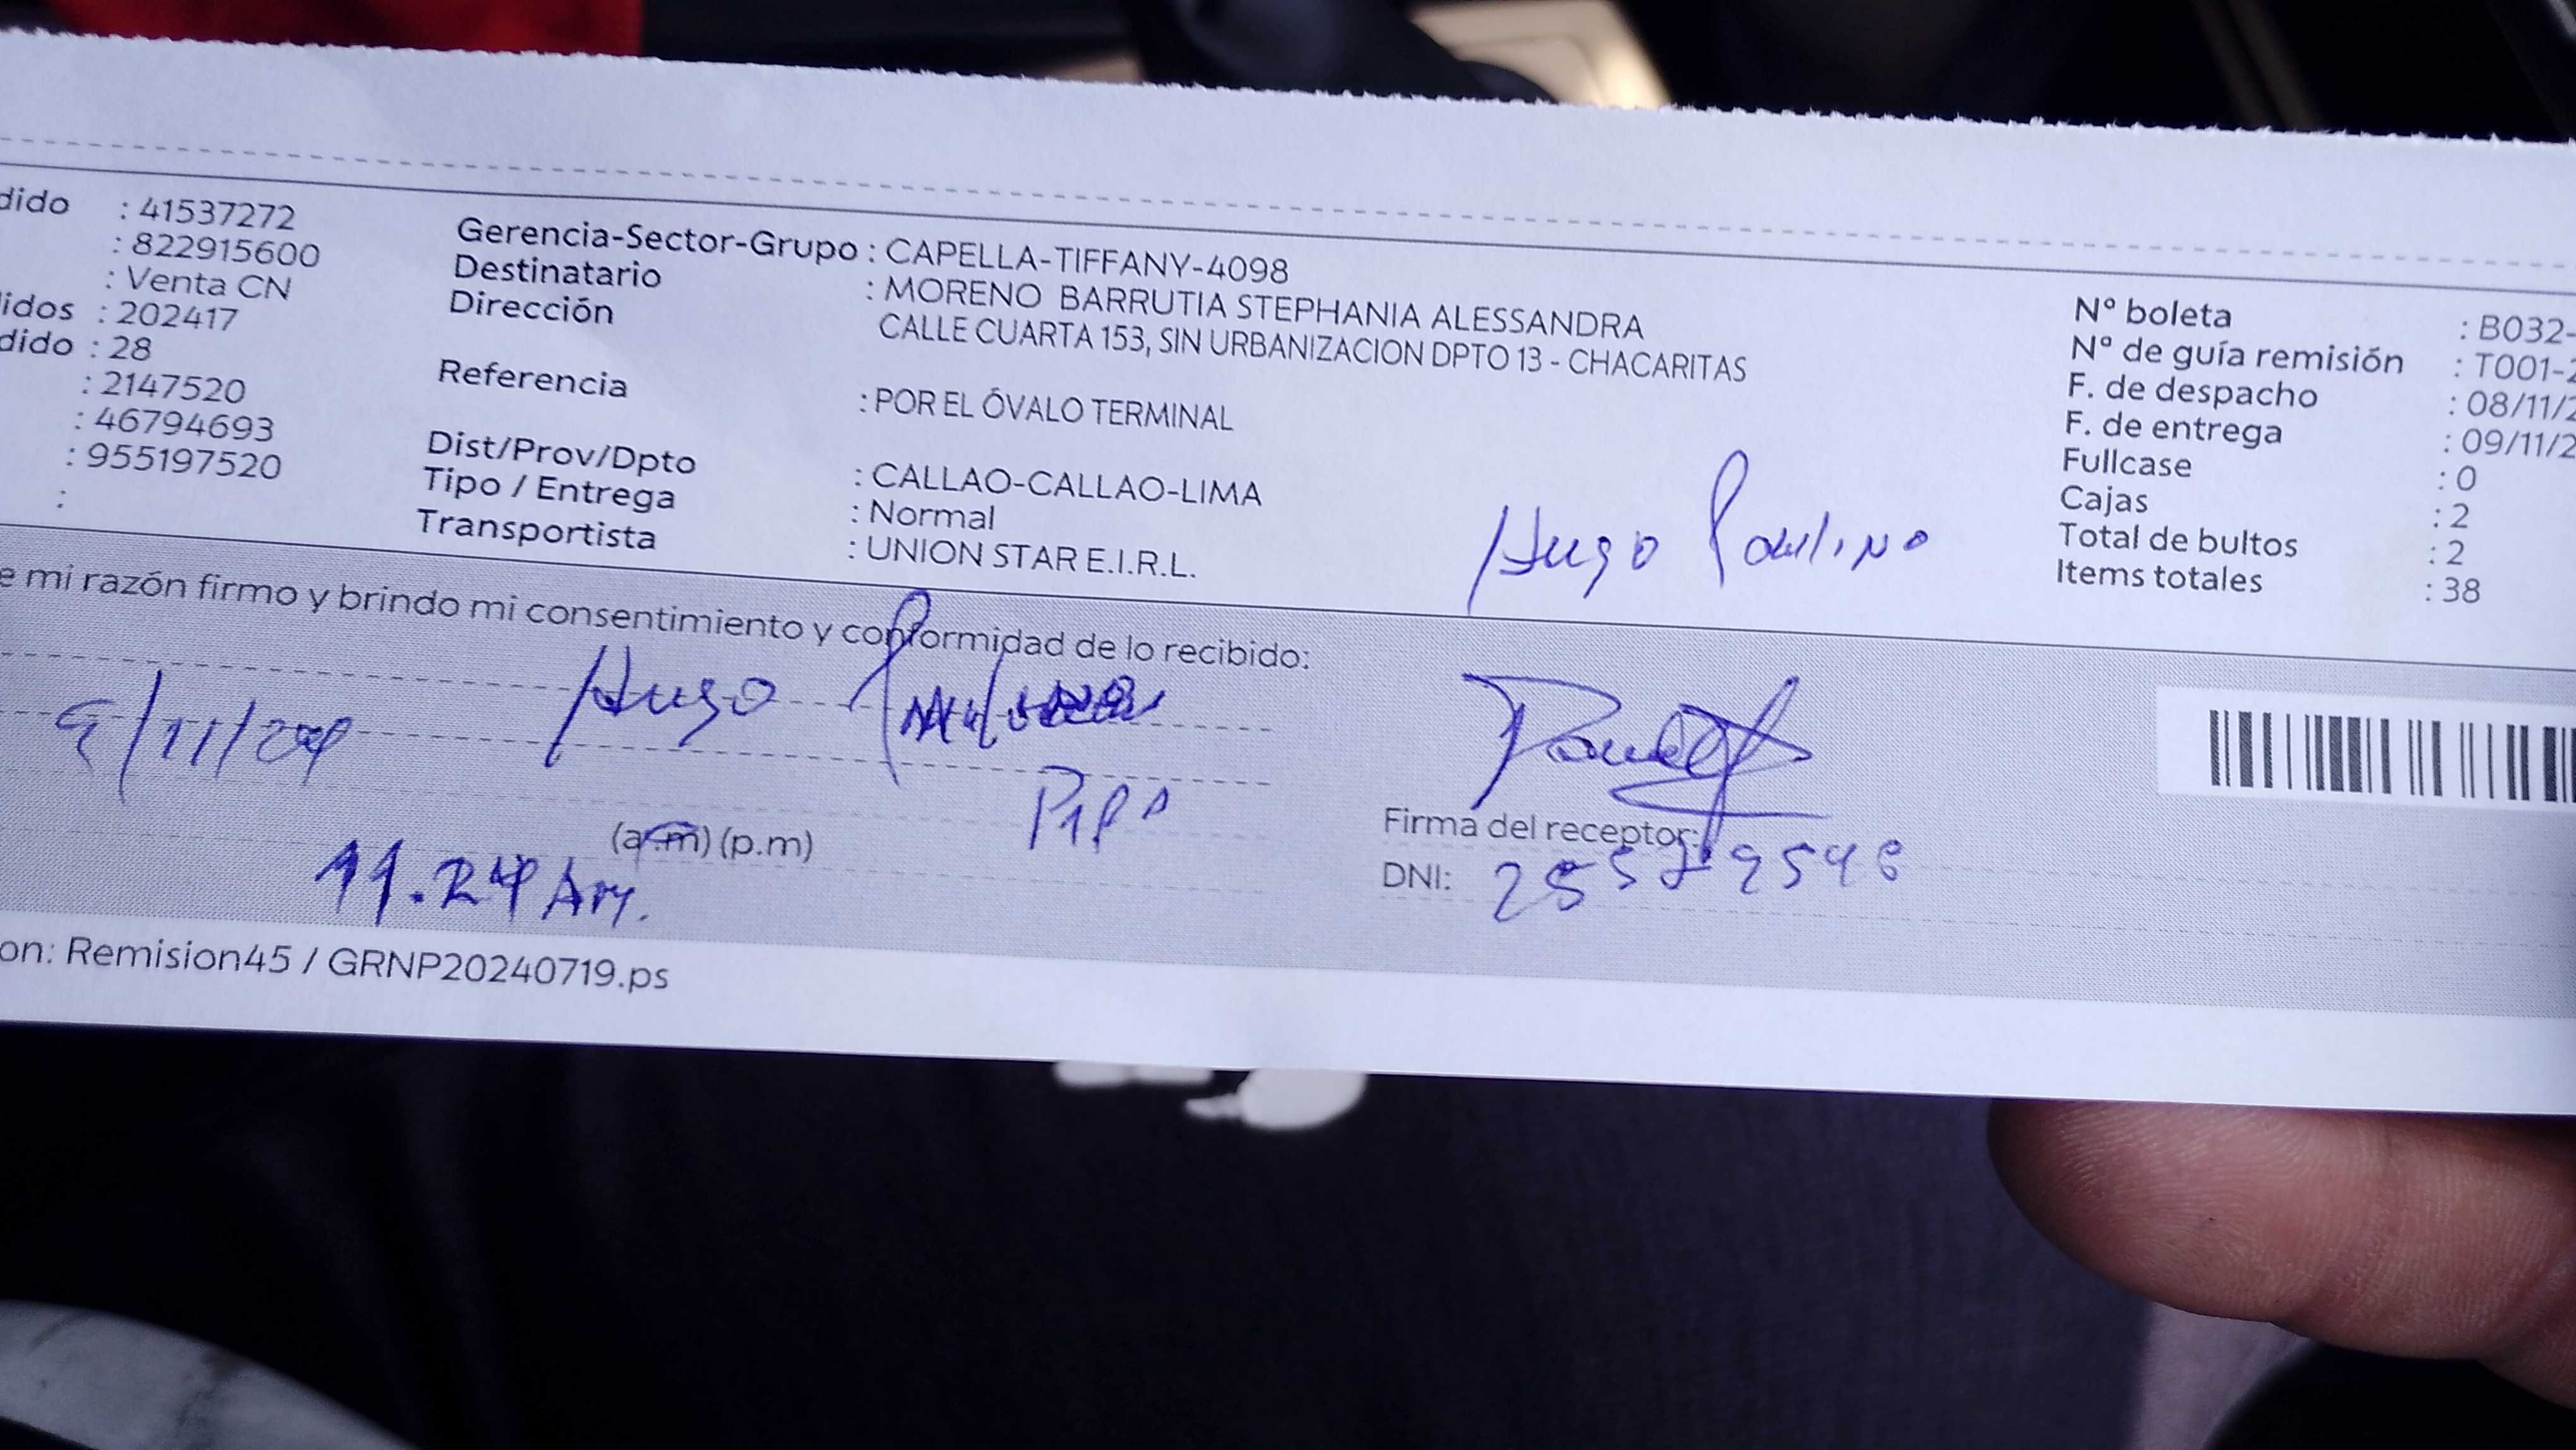 dido : 41537272
: 822915600
: Venta CN
idos : 202417
dido : 28
: 2147520
: 46794693
: 955197520
:
Gerencia-Sector-Grupo : CAPELLA-TIFFANY-4098
Destinatario : MORENO BARRUTIA STEPHANIA ALESSANDRA
Dirección CALLE CUARTA 153, SIN URBANIZACION DPTO 13 - CHACARITAS
Referencia : POR EL ÓVALO TERMINAL
Dist/Prov/Dpto : CALLAO-CALLAO-LIMA
Tipo / Entrega : Normal
Transportista : UNION STAR E.I.R.L.
Nº boleta : B032-
Nº de guía remisión : T001-2
F. de despacho : 08/11/2
F. de entrega : 09/11/2
Fullcase : 0
Cajas : 2
Total de bultos : 2
Items totales : 38
Hugo Paulino
e mi razón firmo y brindo mi consentimiento y conformidad de lo recibido:
Hugo
9/11/24
PAPA
(a.m) (p.m)
11.24 Am.
Firma del receptor:
DNI:
on: Remision45 / GRNP20240719.ps